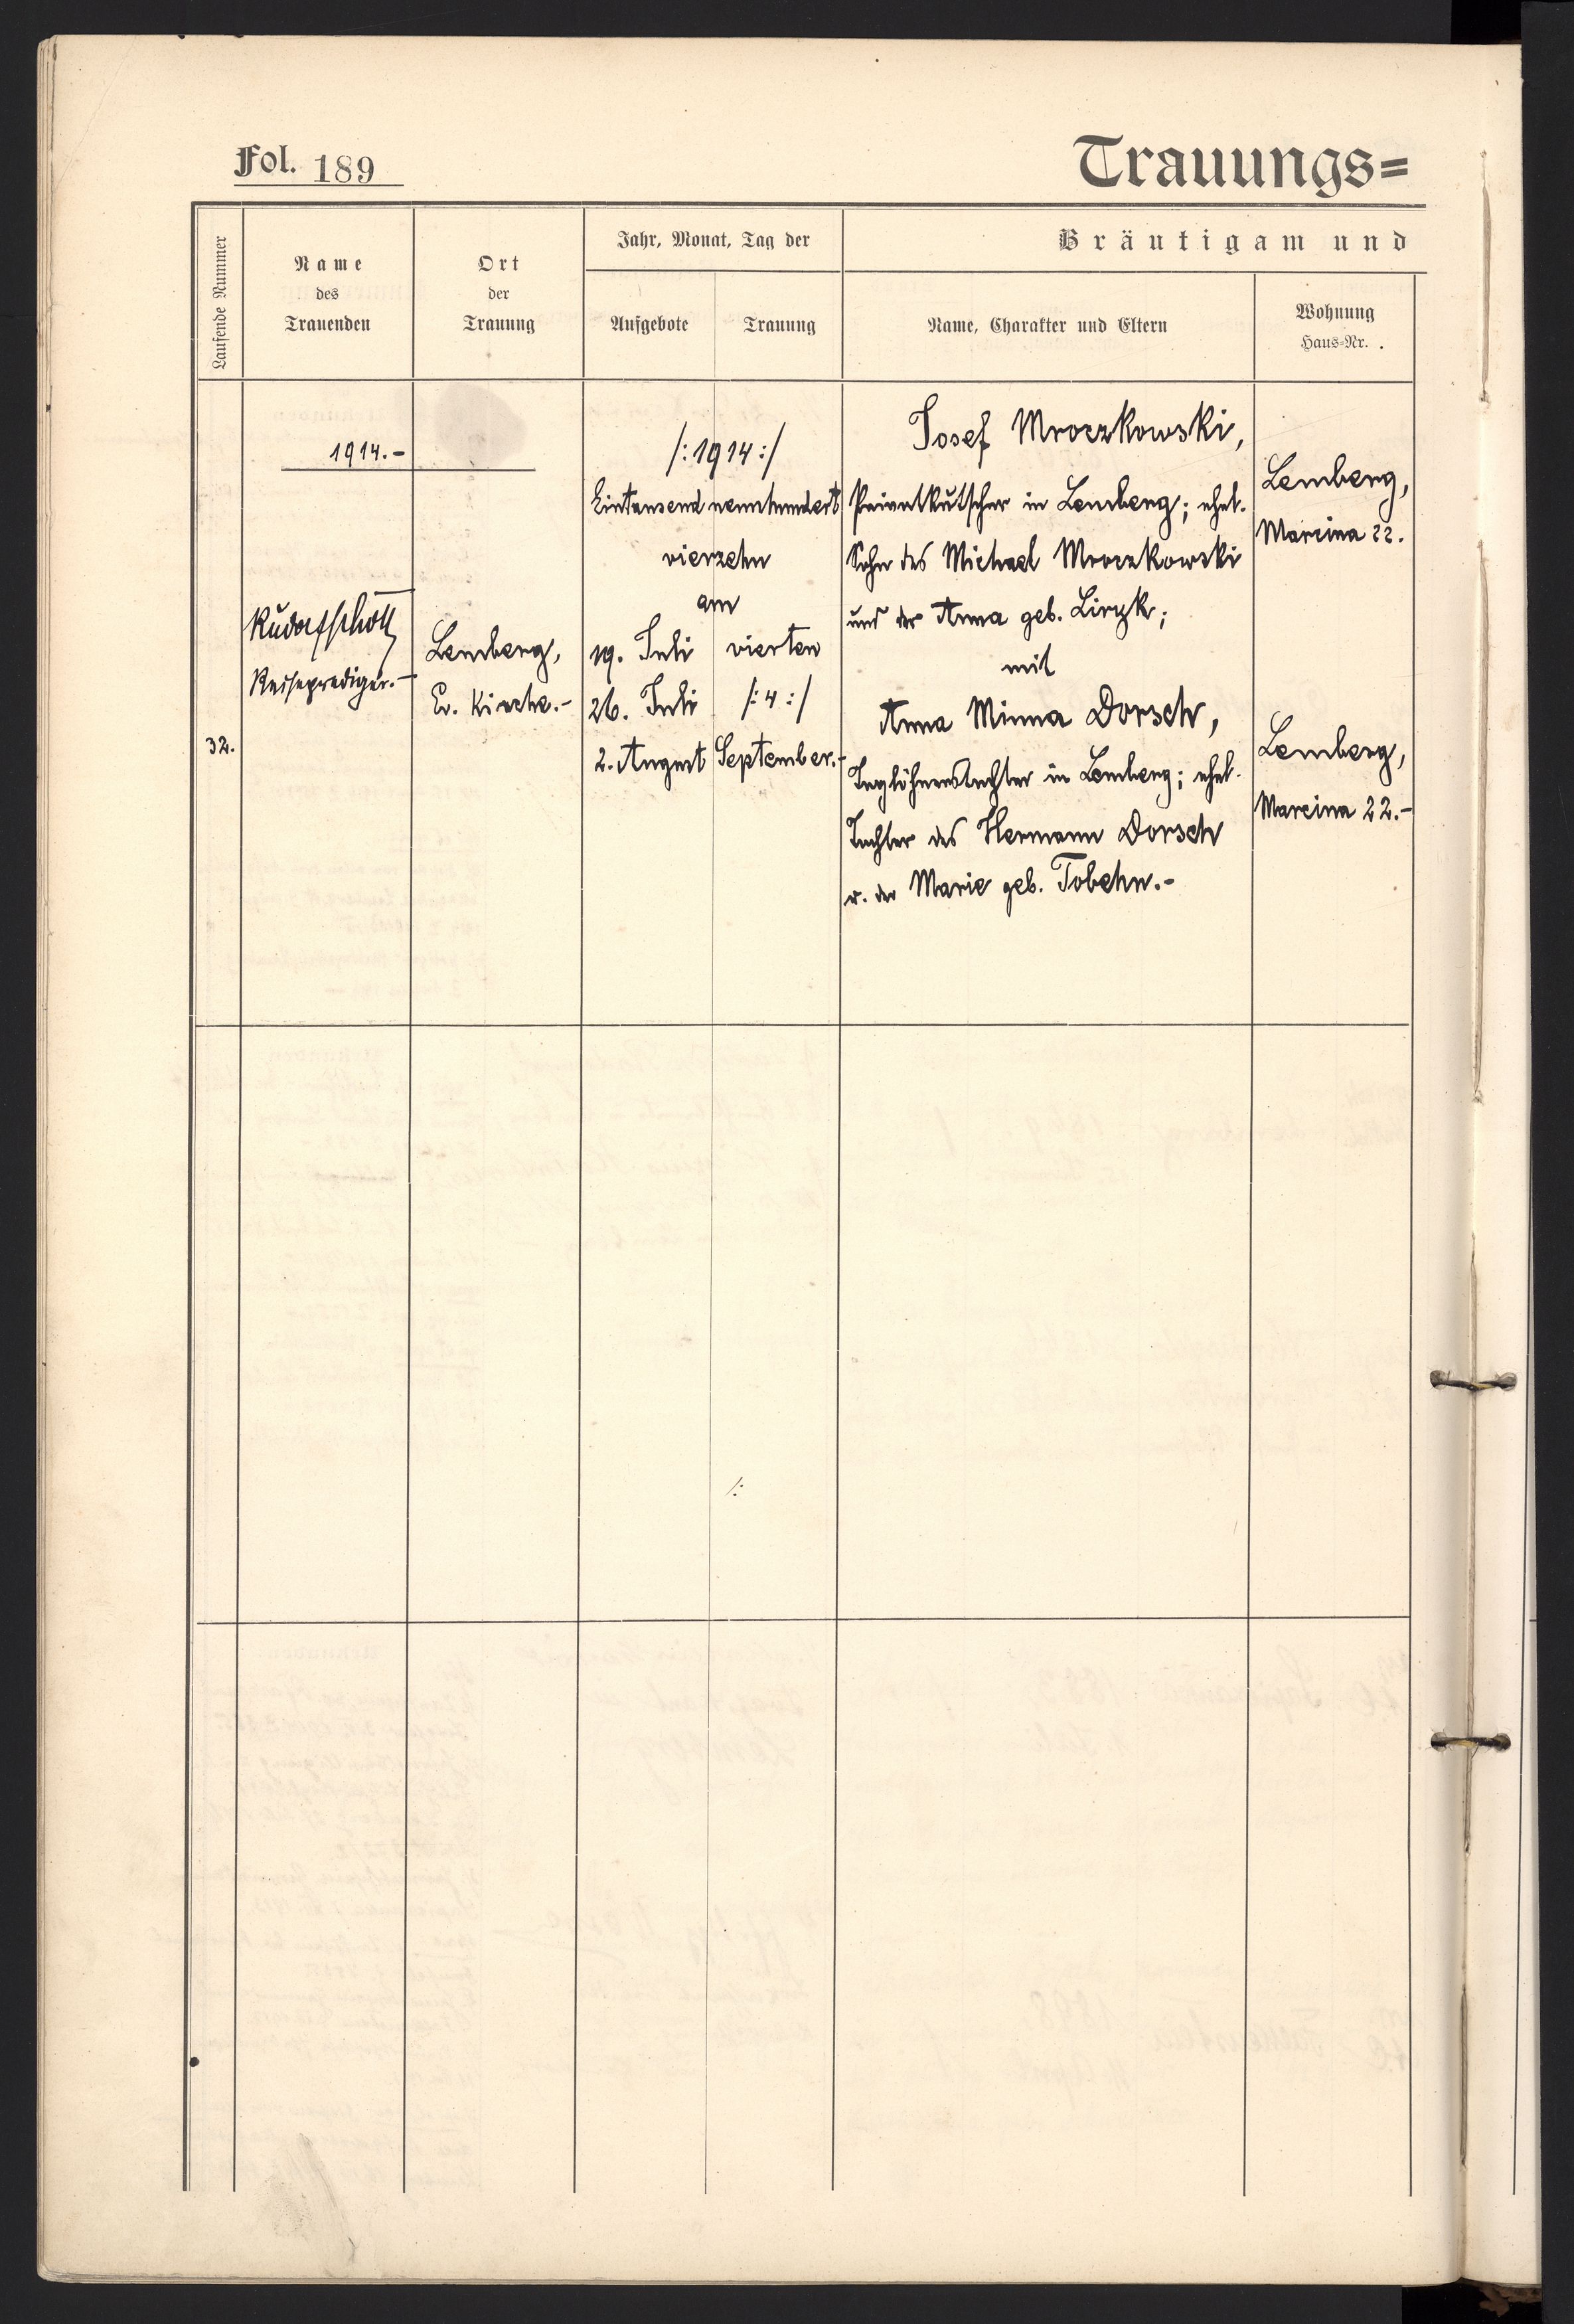 Fol. 189
Trauungs=
Laufende Nummer
Name
des
Trauenden
Ort
der
Trauung
Jahr, Monat, Tag der
Aufgebote
Trauung
Bräutigam und
Name, Charakter und Eltern
Wohnung
Haus-Nr.
32.
1914.-
Rudolf Scholz
Reiseprediger.-
Lemberg,
Ev. Kirche.-
/: 1914 :/
Eintausend neunhundert
vierzehn
am
19. Juli
26. Juli
2. August
vierten
/: 4 :/
September.-
Josef Mroczkowski,
Privatkutscher in Lemberg; ehel.
Sohn des Michael Mroczkowski
und der Anna geb. Liryk;
mit
Anna Minna Dorsch,
Taglöhnerstochter in Lemberg; ehel.
Tochter des Hermann Dorsch
u. der Marie geb. Tobehn.-
Lemberg,
Marcina 22.
Lemberg,
Marcina 22.-
/: